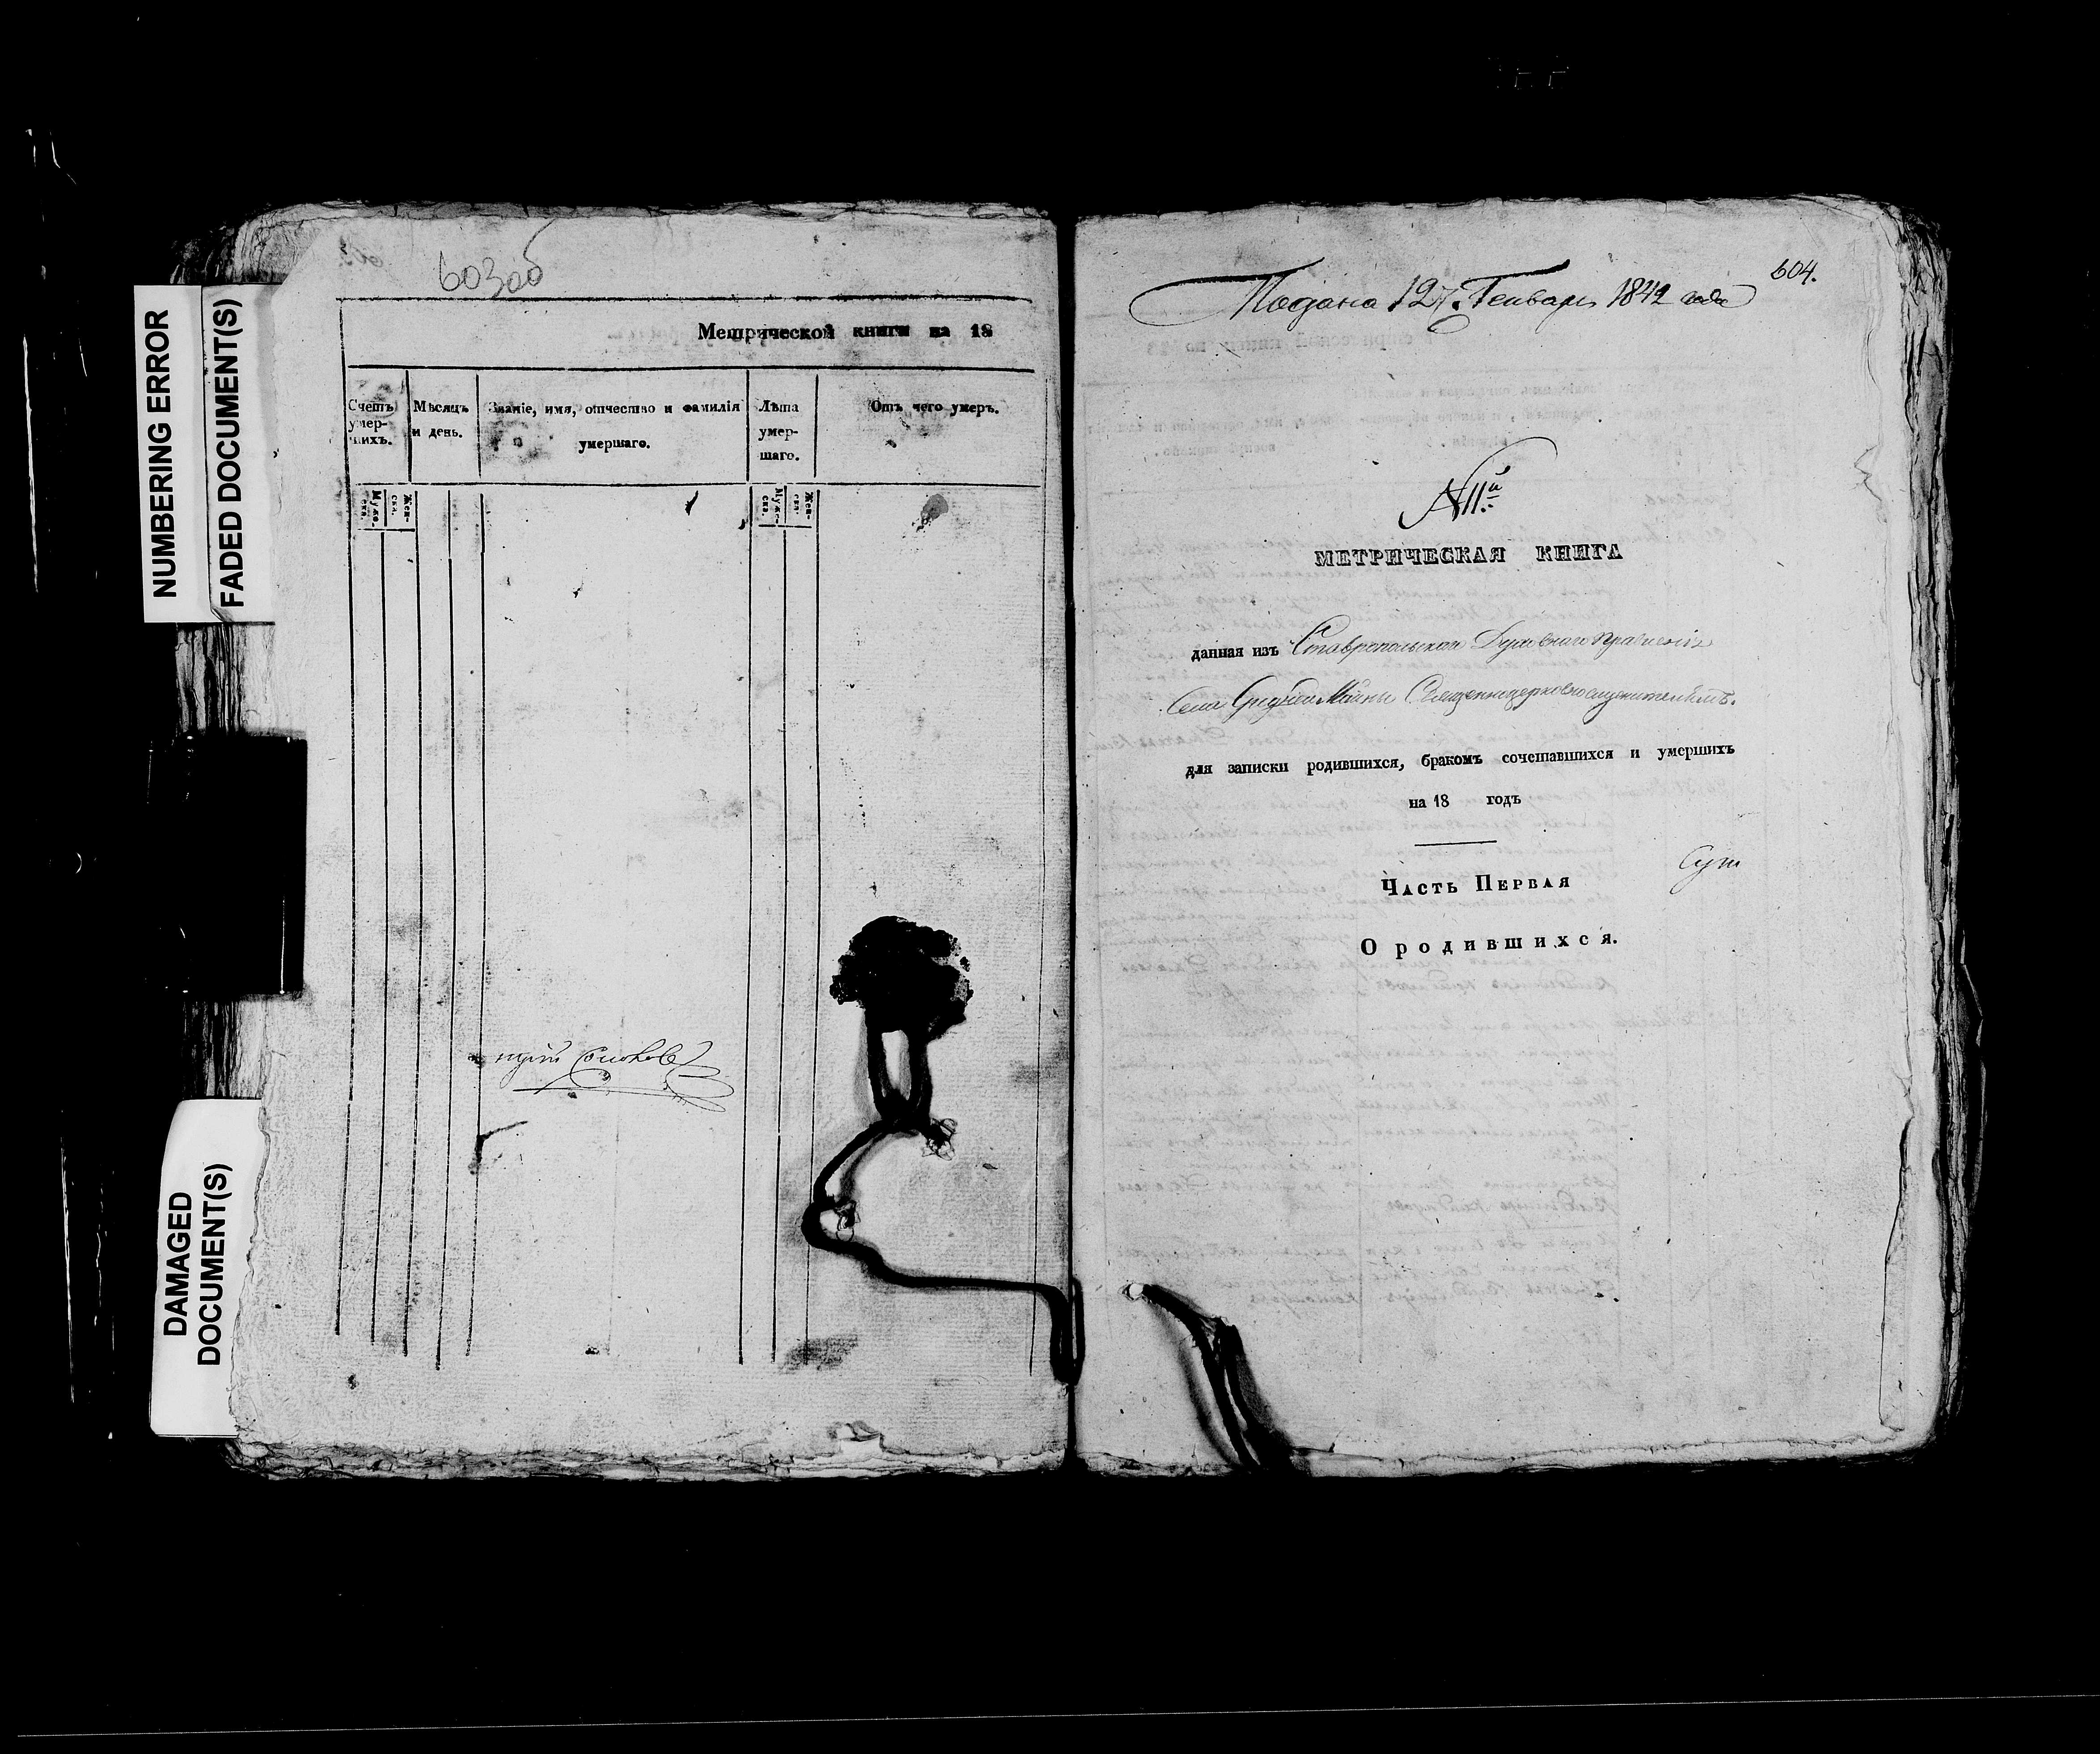 NUMBERING ERROR
FADED DOCUMENT(S)
DAMAGED
DOCUMENT(S)
603об
Метрической книги на 18
Счетъ умер-шихъ.
Мѣсяцъ и день.
Званіе, имя, отчество и фамилія умершаго.
Лѣта умер-шаго.
Отъ чего умеръ.
Муже-ска.
Жен-ска.
Муже-ска.
Жен-ска.
604.
Подана 27. Генваря 1842 года
№ 11й
МЕТРИЧЕСКАЯ КНИГА
данная изъ Ставропольскаго Духовнаго Правленія
Села Средней Майны Священноцерковнослужителямъ.
для записки родившихся, бракомъ сочетавшихся и умершихъ
на 18 годъ
ЧАСТЬ ПЕРВАЯ
О родившихся.